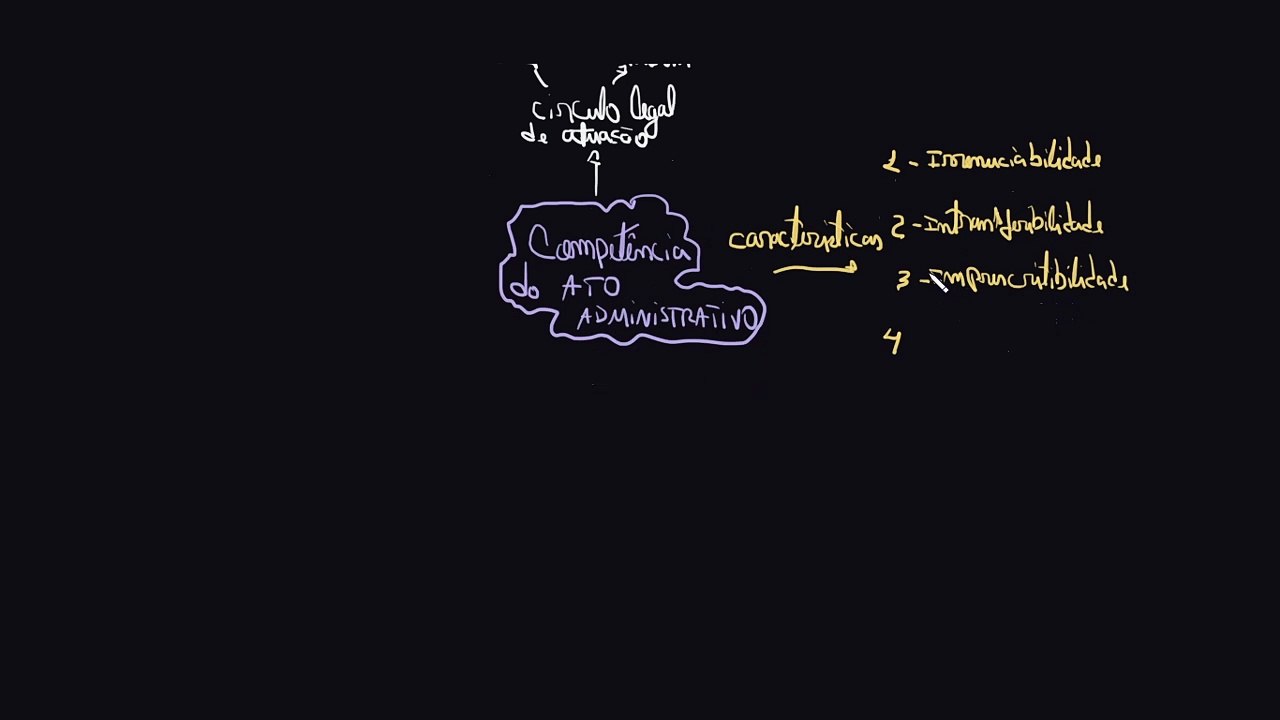 circulo legal
de atuação
Competência
do ATO
ADMINISTRATIVO
características
1 - Irrenunciabilidade
2 - Intransferibilidade
3 - Imprescritibilidade
4